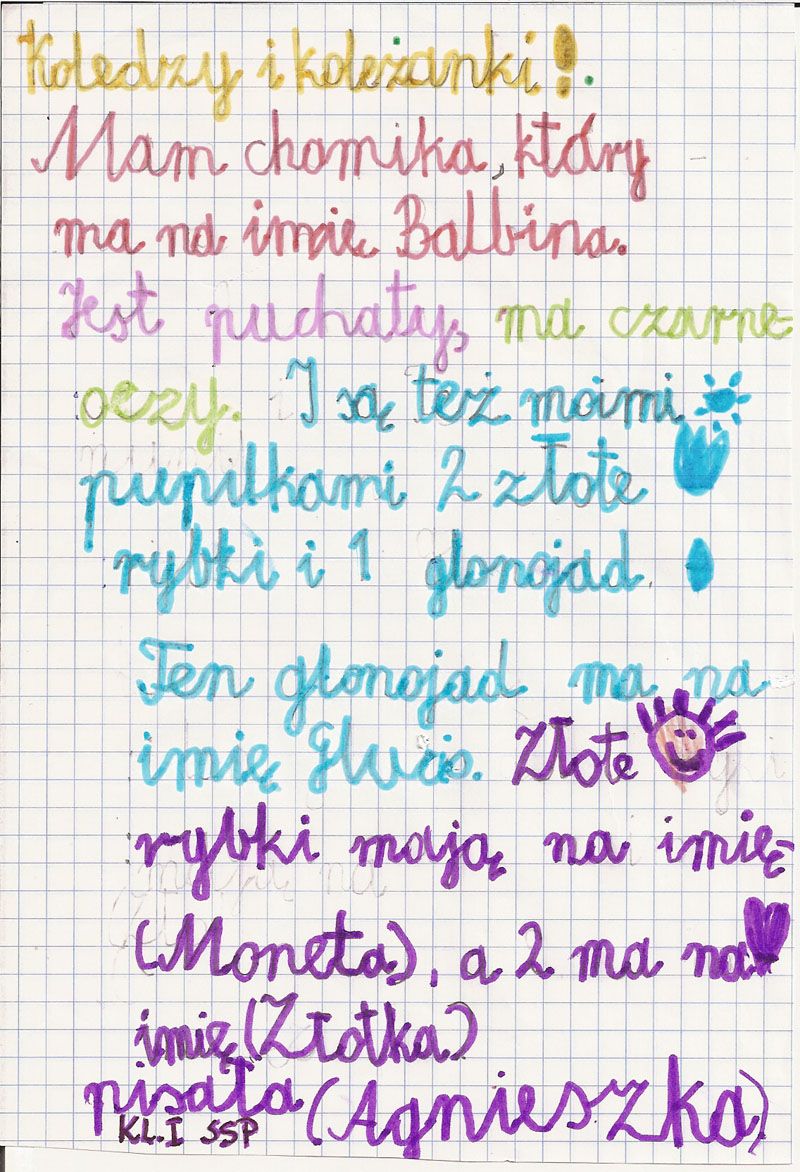 Koledzy i koleżanki!
Mam chomika, który
ma na imię Balbina.
Jest puchaty, ma czarne
oczy. I są też moimi
pupilkami 2 złote
rybki i 1 glonojad.
Ten glonojad ma na
imię Glucis. Złote
rybki mają na imię
(Moneta), a 2 ma na
imię (Złotka)
pisała (Agnieszka)
KL.I SSP